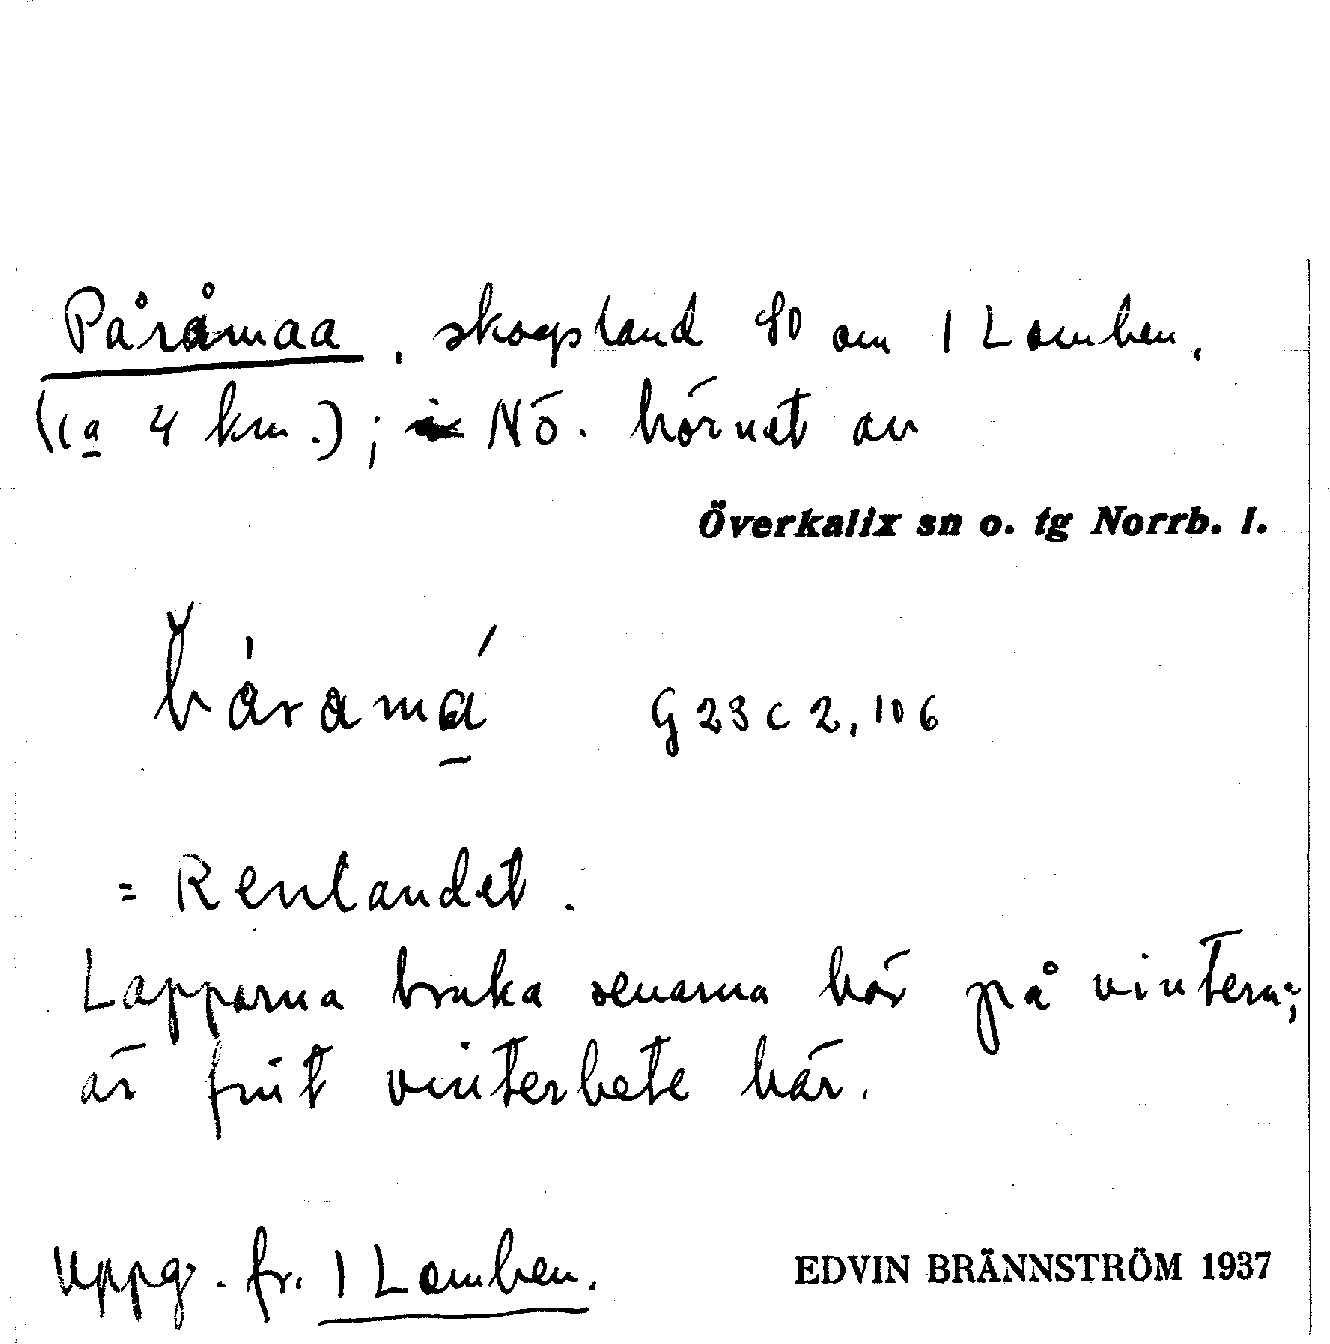 Påråmaa, skogsland SO om 1 Lomben,
(ca 4 km.); NÖ. hörnet av
Överkalix sn o. tg Norrb. l.
G 23 c 2, 106
= Renlandet.
Lapparna bruka renarna här på vintern;
är fint vinterbete här.
Uppg. fr. 1 Lomben.
EDVIN BRÄNNSTRÖM 1937